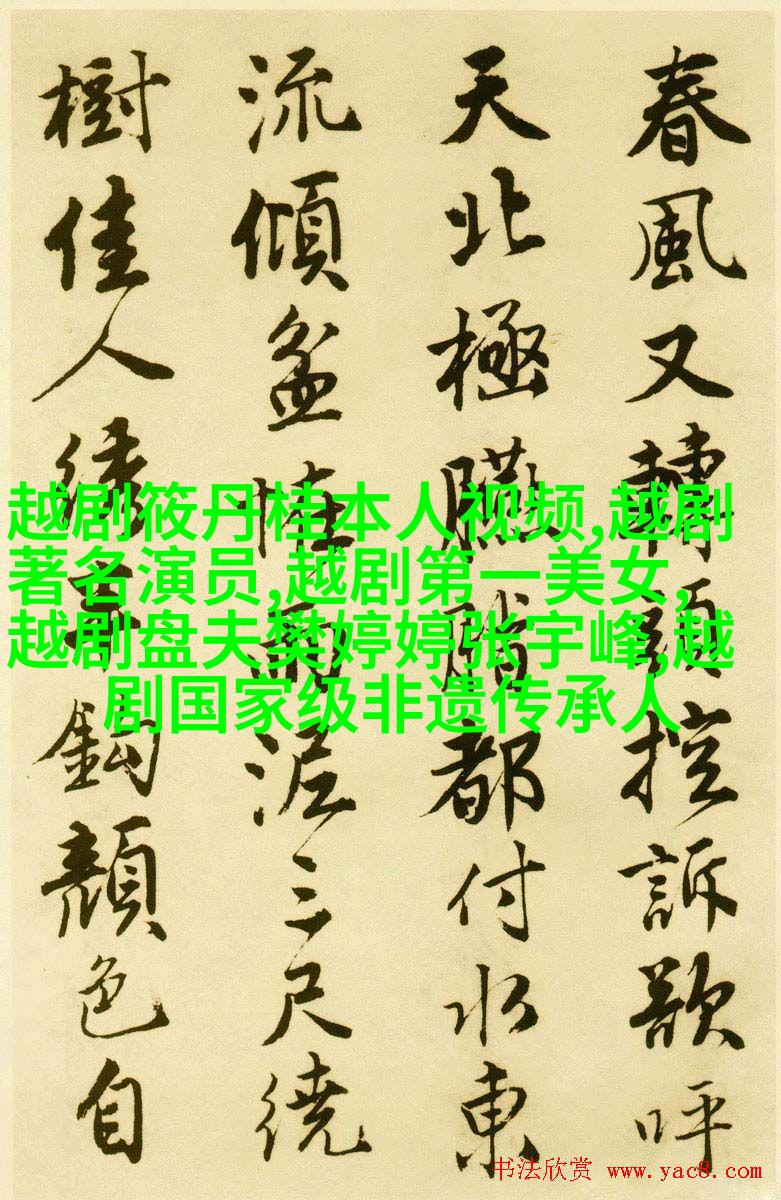 春風又轉頭控訴欲呼
天北極臙脂都付水東
流傾盆怪雨泥三尺繞
樹佳人繡半鈎顏色自
越剧筱丹桂本人视频,越剧
著名演员,越剧第一美女,
越剧盘夫樊婷婷张宇峰,越
剧国家级非遗传承人
书法欣赏 www.yac8.com